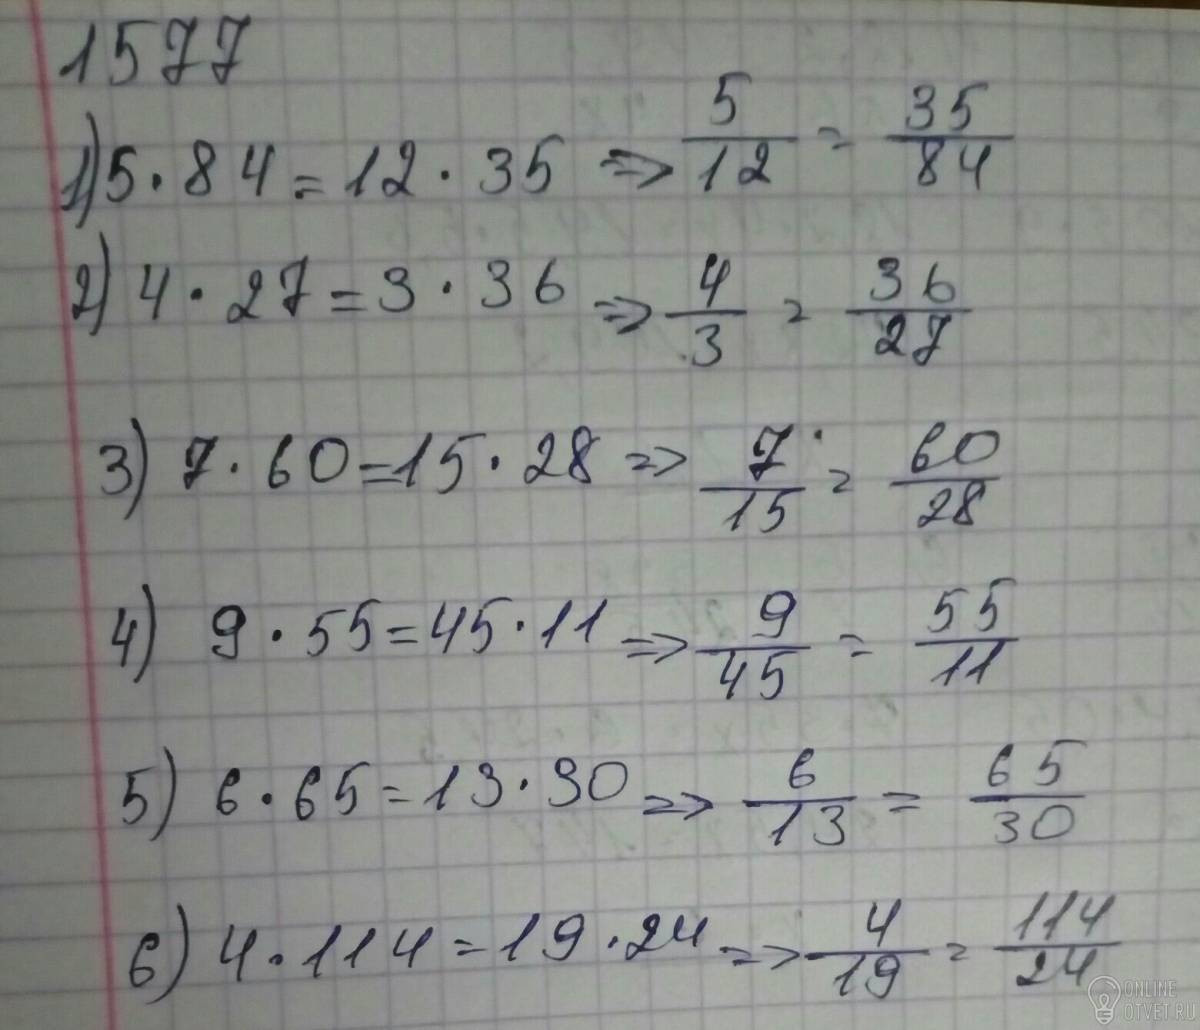 1577
1) 5 · 84 = 12 · 35 => 5/12 = 35/84
2) 4 · 27 = 3 · 36 => 4/3 = 36/27
3) 7 · 60 = 15 · 28 => 7/15 = 60/28
4) 9 · 55 = 45 · 11 => 9/45 = 55/11
5) 6 · 65 = 13 · 30 => 6/13 = 65/30
6) 4 · 114 = 19 · 24 => 4/19 = 114/24
ONLINE
OTVET.RU